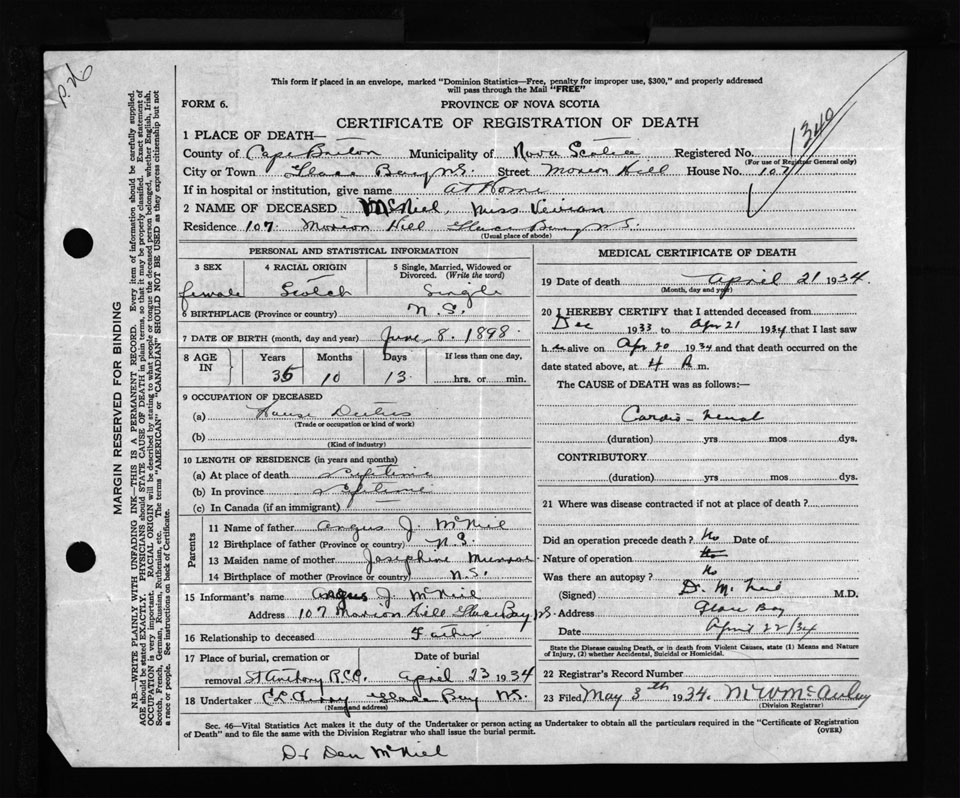 P.26
This form if placed in an envelope, marked "Dominion Statistics—Free, penalty for improper use, $300," and properly addressed
will pass through the Mail "FREE"
FORM 6.
PROVINCE OF NOVA SCOTIA
CERTIFICATE OF REGISTRATION OF DEATH
1340
1 PLACE OF DEATH—
County of Cape Breton Municipality of Nova Scotia Registered No.
(For use of Registrar General only)
City or Town Glace Bay N.S. Street Morion Hill House No. 107
If in hospital or institution, give name at Home
2 NAME OF DECEASED McNeil, Miss Veivian
Residence 107 Morion Hill Glace Bay N.S.
(Usual place of abode)
PERSONAL AND STATISTICAL INFORMATION
3 SEX 4 RACIAL ORIGIN 5 Single, Married, Widowed or Divorced. (Write the word)
female Scotch Single
6 BIRTHPLACE (Province or country) N.S.
7 DATE OF BIRTH (month, day and year) June 8. 1898.
8 AGE IN Years Months Days If less than one day,
35 10 13 hrs. or min.
9 OCCUPATION OF DECEASED
(a) House Duties
(Trade or occupation or kind of work)
(b)
(Kind of industry)
10 LENGTH OF RESIDENCE (in years and months)
(a) At place of death Lifetime
(b) In province Lifetime
(c) In Canada (if an immigrant)
Parents
11 Name of father Angus J. McNeil
12 Birthplace of father (Province or country) N.S.
13 Maiden name of mother Josephine Munroe
14 Birthplace of mother (Province or country) N.S.
15 Informant's name Angus J. McNeil
Address 107 Morion Hill Glace Bay N.S.
16 Relationship to deceased Father
17 Place of burial, cremation or removal Date of burial
St Anthony R.C.C. April 23 1934
18 Undertaker Glace Bay N.S.
(Name and address)
MEDICAL CERTIFICATE OF DEATH
19 Date of death April 21 1934.
(Month, day and year)
20 I HEREBY CERTIFY that I attended deceased from
Dec 1933 to Apr 21 1934 that I last saw
h er alive on Apr 20 1934 and that death occurred on the
date stated above, at 4 A m.
The CAUSE of DEATH was as follows:—
Cardio-renal
(duration) yrs mos dys.
CONTRIBUTORY
(duration) yrs mos dys.
21 Where was disease contracted if not at place of death?
Did an operation precede death? No Date of
Nature of operation
Was there an autopsy? No
(Signed) D. McNeil M.D.
Address Glace Bay
Date April 22/34
State the Disease causing Death, or in death from Violent Causes, state (1) Means and Nature
of Injury, (2) whether Accidental, Suicidal or Homicidal.
22 Registrar's Record Number
23 Filed May 3th 1934. M W McAulay
(Division Registrar)
Sec. 46—Vital Statistics Act makes it the duty of the Undertaker or person acting as Undertaker to obtain all the particulars required in the "Certificate of Registration
of Death" and to file the same with the Division Registrar who shall issue the burial permit.
(OVER)
Dr Dan McNeil
MARGIN RESERVED FOR BINDING
N.B.—WRITE PLAINLY WITH UNFADING INK—THIS IS A PERMANENT RECORD. Every item of information should be carefully supplied.
AGE should be stated EXACTLY. PHYSICIANS should STATE CAUSE OF DEATH in plain terms, so that it may be properly classified. Exact statement of
OCCUPATION is very important. RACIAL ORIGIN will be described by stating to what people or tongue the deceased person belonged, whether English, Irish,
Scotch, French, German, Russian, Ruthenian, etc. The terms "AMERICAN" or "CANADIAN" SHOULD NOT BE USED as they express citizenship but not
a race or people. See instructions on back of Certificate.